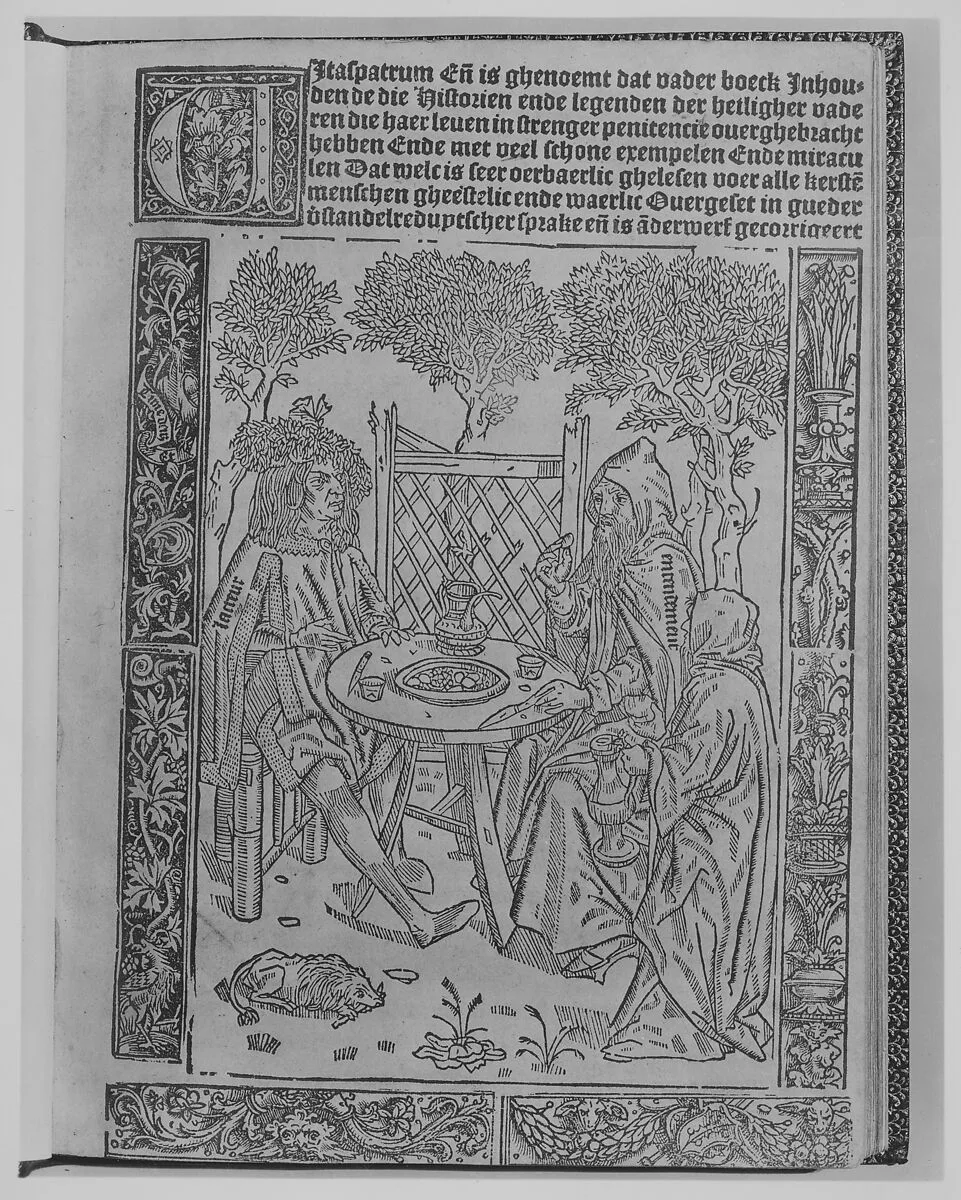 VItaspatrum Eñ is ghenoemt dat vader boeck Inhou-
den de die Historien ende legenden der heiligher vade
ren die haer leuen in strenger penitencie ouerghebracht
hebben Ende met veel schone exempelen Ende miracu
len Dat welc is seer oerbaerlic ghelesen voer alle kerstē
menschen gheestelic ende waerlic Ouergeset in gueder
v̄standelre duytscher sprake eñ is āderwerf gecorrigeert
lacteur